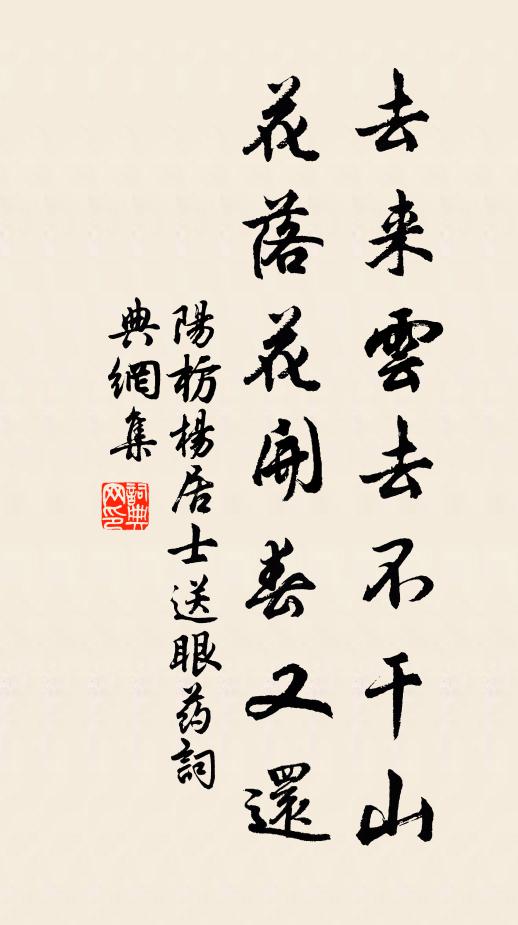 去来雲去不干山
花落花開春又還
陽枋楊居士送眼药詞
典網集
詞典
网印